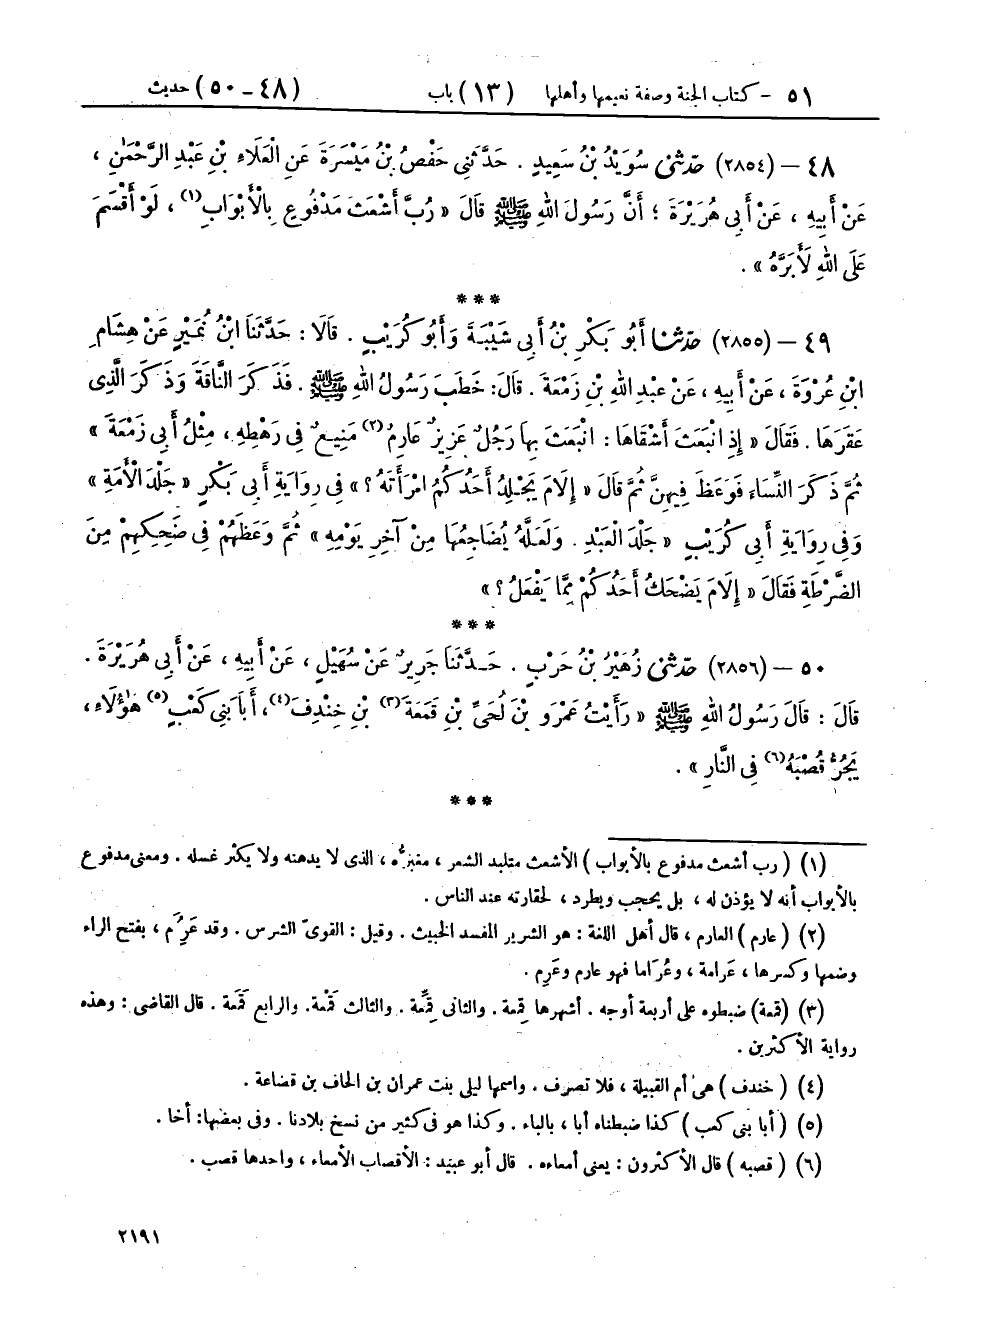 ٥١ - كتاب الجنة وصفة نعيمها وأهلها (١٣) باب (٤٨ - ٥٠) حديث
٤٨ – (٢٨٥٤) حَدَّثَنِي سُوَيْدُ بْنُ سَعِيدٍ . حَدَّثَنِي حَفْصُ بْنُ مَيْسَرَةَ عَنِ الْعَلَاءِ بْنِ عَبْدِ الرَّحْمَٰنِ ،
عَنْ أَبِيهِ ، عَنْ أَبِي هُرَيْرَةَ ؛ أَنَّ رَسُولَ اللهِ ﷺ قَالَ « رُبَّ أَشْعَثَ مَدْفُوعٍ بِالْأَبْوَابِ(١) ، لَوْ أَقْسَمَ
عَلَى اللهِ لَأَبَرَّهُ » .
***
٤٩ – (٢٨٥٥) حَدَّثَنَا أَبُو بَكْرِ بْنُ أَبِي شَيْبَةَ وَأَبُو كُرَيْبٍ . قَالَا : حَدَّثَنَا ابْنُ نُمَيْرٍ عَنْ هِشَامِ
ابْنِ عُرْوَةَ ، عَنْ أَبِيهِ ، عَنْ عَبْدِ اللهِ بْنِ زَمْعَةَ . قَالَ : خَطَبَ رَسُولُ اللهِ ﷺ . فَذَكَرَ النَّاقَةَ وَذَكَرَ الَّذِي
عَقَرَهَا . فَقَالَ « إِذِ انْبَعَثَ أَشْقَاهَا : انْبَعَثَ بِهَا رَجُلٌ عَزِيزٌ عَارِمٌ(٢) مَنِيعٌ فِي رَهْطِهِ ، مِثْلُ أَبِي زَمْعَةَ »
ثُمَّ ذَكَرَ النِّسَاءَ فَوَعَظَ فِيهِنَّ ثُمَّ قَالَ « إِلَامَ يَجْلِدُ أَحَدُكُمُ امْرَأَتَهُ ؟ » فِي رِوَايَةِ أَبِي بَكْرٍ « جَلْدَ الْأَمَةِ »
وَفِي رِوَايَةِ أَبِي كُرَيْبٍ « جَلْدَ الْعَبْدِ . وَلَعَلَّهُ يُضَاجِعُهَا مِنْ آخِرِ يَوْمِهِ » ثُمَّ وَعَظَهُمْ فِي ضَحِكِهِمْ مِنَ
الضَّرْطَةِ فَقَالَ « إِلَامَ يَضْحَكُ أَحَدُكُمْ مِمَّا يَفْعَلُ ؟ »
***
٥٠ – (٢٨٥٦) حَدَّثَنِي زُهَيْرُ بْنُ حَرْبٍ . حَدَّثَنَا جَرِيرٌ عَنْ سُهَيْلٍ ، عَنْ أَبِيهِ ، عَنْ أَبِي هُرَيْرَةَ .
قَالَ : قَالَ رَسُولُ اللهِ ﷺ « رَأَيْتُ عَمْرَو بْنَ لُحَيِّ بْنِ قَمَعَةَ(٣) بْنِ خِنْدِفَ(٤) ، أَبَا بَنِي كَعْبٍ(٥) هَٰؤُلَاءِ ،
يَجُرُّ قُصْبَهُ(٦) فِي النَّارِ » .
***
(١) ( رب أشعث مدفوع بالأبواب ) الأشعث متلبد الشعر ، مغبرّه ، الذى لا يدهنه ولا يكثر غسله . ومعنى مدفوع
بالأبواب أنه لا يؤذن له ، بل يحجب ويطرد ، لحقارته عند الناس .
(٢) ( عارم ) العارم ، قال أهل اللغة : هو الشرير المفسد الخبيث . وقيل : القوىّ الشرس . وقد عَرُِمَ ، بفتح الراء
وضمها وكسرها ، عَرامة ، وعُرَاما فهو عارم وعَرِم .
(٣) (قمعة) ضبطوه على أربعة أوجه . أشهرها قِمَعة . والثانى قِمِّعة . والثالث قَمْعة. والرابع قَمَعة . قال القاضى : وهذه
رواية الأكثرين .
(٤) ( خندف ) هى أم القبيلة ، فلا تصرف . واسمها ليلى بنت عمران بن الحاف بن قضاعة .
(٥) ( أبا بنى كعب ) كذا ضبطناه أبا ، بالباء . وكذا هو فى كثير من نسخ بلادنا . وفى بعضها : أخا .
(٦) ( قصبه ) قال الأكثرون : يعنى أمعاءه . قال أبو عبيد : الأقصاب الأمعاء ، واحدها قصب .
٢١٩١